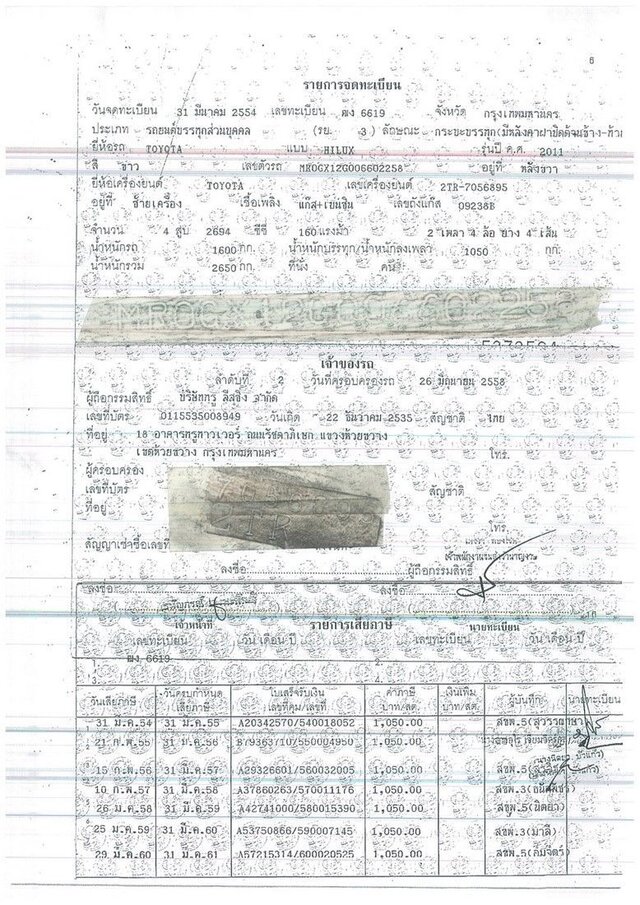 6
รายการจดทะเบียน
วันจดทะเบียน 31 มีนาคม 2554 เลขทะเบียน ฒง 6619 จังหวัด กรุงเทพมหานคร
ประเภท รถยนต์บรรทุกส่วนบุคคล (รย. 3) ลักษณะ กระบะบรรทุก(มีหลังคาฝาปิดด้านข้าง-ท้าย
ยี่ห้อรถ TOYOTA แบบ HILUX รุ่นปี ค.ศ. 2011
สี ขาว เลขตัวรถ MR0GX12G006602258 อยู่ที่ หลังขวา
ยี่ห้อเครื่องยนต์ TOYOTA เลขเครื่องยนต์ 2TR-7056895
อยู่ที่ ซ้ายเครื่อง เชื้อเพลิง แก๊ส+เบนซิน เลขถังแก๊ส 09238E
จำนวน 4 สูบ 2694 ซีซี 160 แรงม้า 2 เพลา 4 ล้อ ยาง 4 เส้น
น้ำหนักรถ 1600 กก. น้ำหนักบรรทุก/น้ำหนักลงเพลา 1050 กก.
น้ำหนักรวม 2650 กก. ที่นั่ง คน
เจ้าของรถ
ลำดับที่ 2 วันที่ครอบครองรถ 26 มิถุนายน 2558
ผู้ถือกรรมสิทธิ์ บริษัททรู ลีสซิ่ง จำกัด
เลขที่บัตร 0115535008949 วันเกิด 22 ธันวาคม 2535 สัญชาติ ไทย
ที่อยู่ 18 อาคารทรูทาวเวอร์ ถนนรัชดาภิเษก แขวงห้วยขวาง
เขตห้วยขวาง กรุงเทพมหานคร โทร.
ผู้ครอบครอง
เลขที่บัตร สัญชาติ
ที่อยู่
โทร.
สัญญาเช่าซื้อเลขที่
ลงชื่อ ผู้ถือกรรมสิทธิ์
ลงชื่อ ลงชื่อ
เจ้าหน้าที่ นายทะเบียน
รายการเสียภาษี
เลขทะเบียน วัน เดือน ปี เลขทะเบียน วัน เดือน ปี
1. ฒง 6619 2.
3. 4.
วันเสียภาษี วันครบกำหนดเสียภาษี ใบเสร็จรับเงิน เล่มที่คุม/เลขที่ ค่าภาษี บาท/สต. เงินเพิ่ม บาท/สต. ผู้บันทึก นายทะเบียน
31 มี.ค.54 31 มี.ค.55 A20342570/540018052 1,050.00
21 ก.พ.55 31 มี.ค.56 B79363710/550004950 1,050.00
15 ก.พ.56 31 มี.ค.57 A29326601/560032005 1,050.00 สขพ.5
10 ก.พ.57 31 มี.ค.58 A37860263/570011176 1,050.00 สขพ.3
26 มี.ค.58 31 มี.ค.59 A42741000/580015390 1,050.00 สขพ.5(นิตยา)
25 มี.ค.59 31 มี.ค.60 A53750866/590007145 1,050.00 สขพ.3(มาลี)
29 มี.ค.60 31 มี.ค.61 A57215314/600020525 1,050.00 สขพ.5